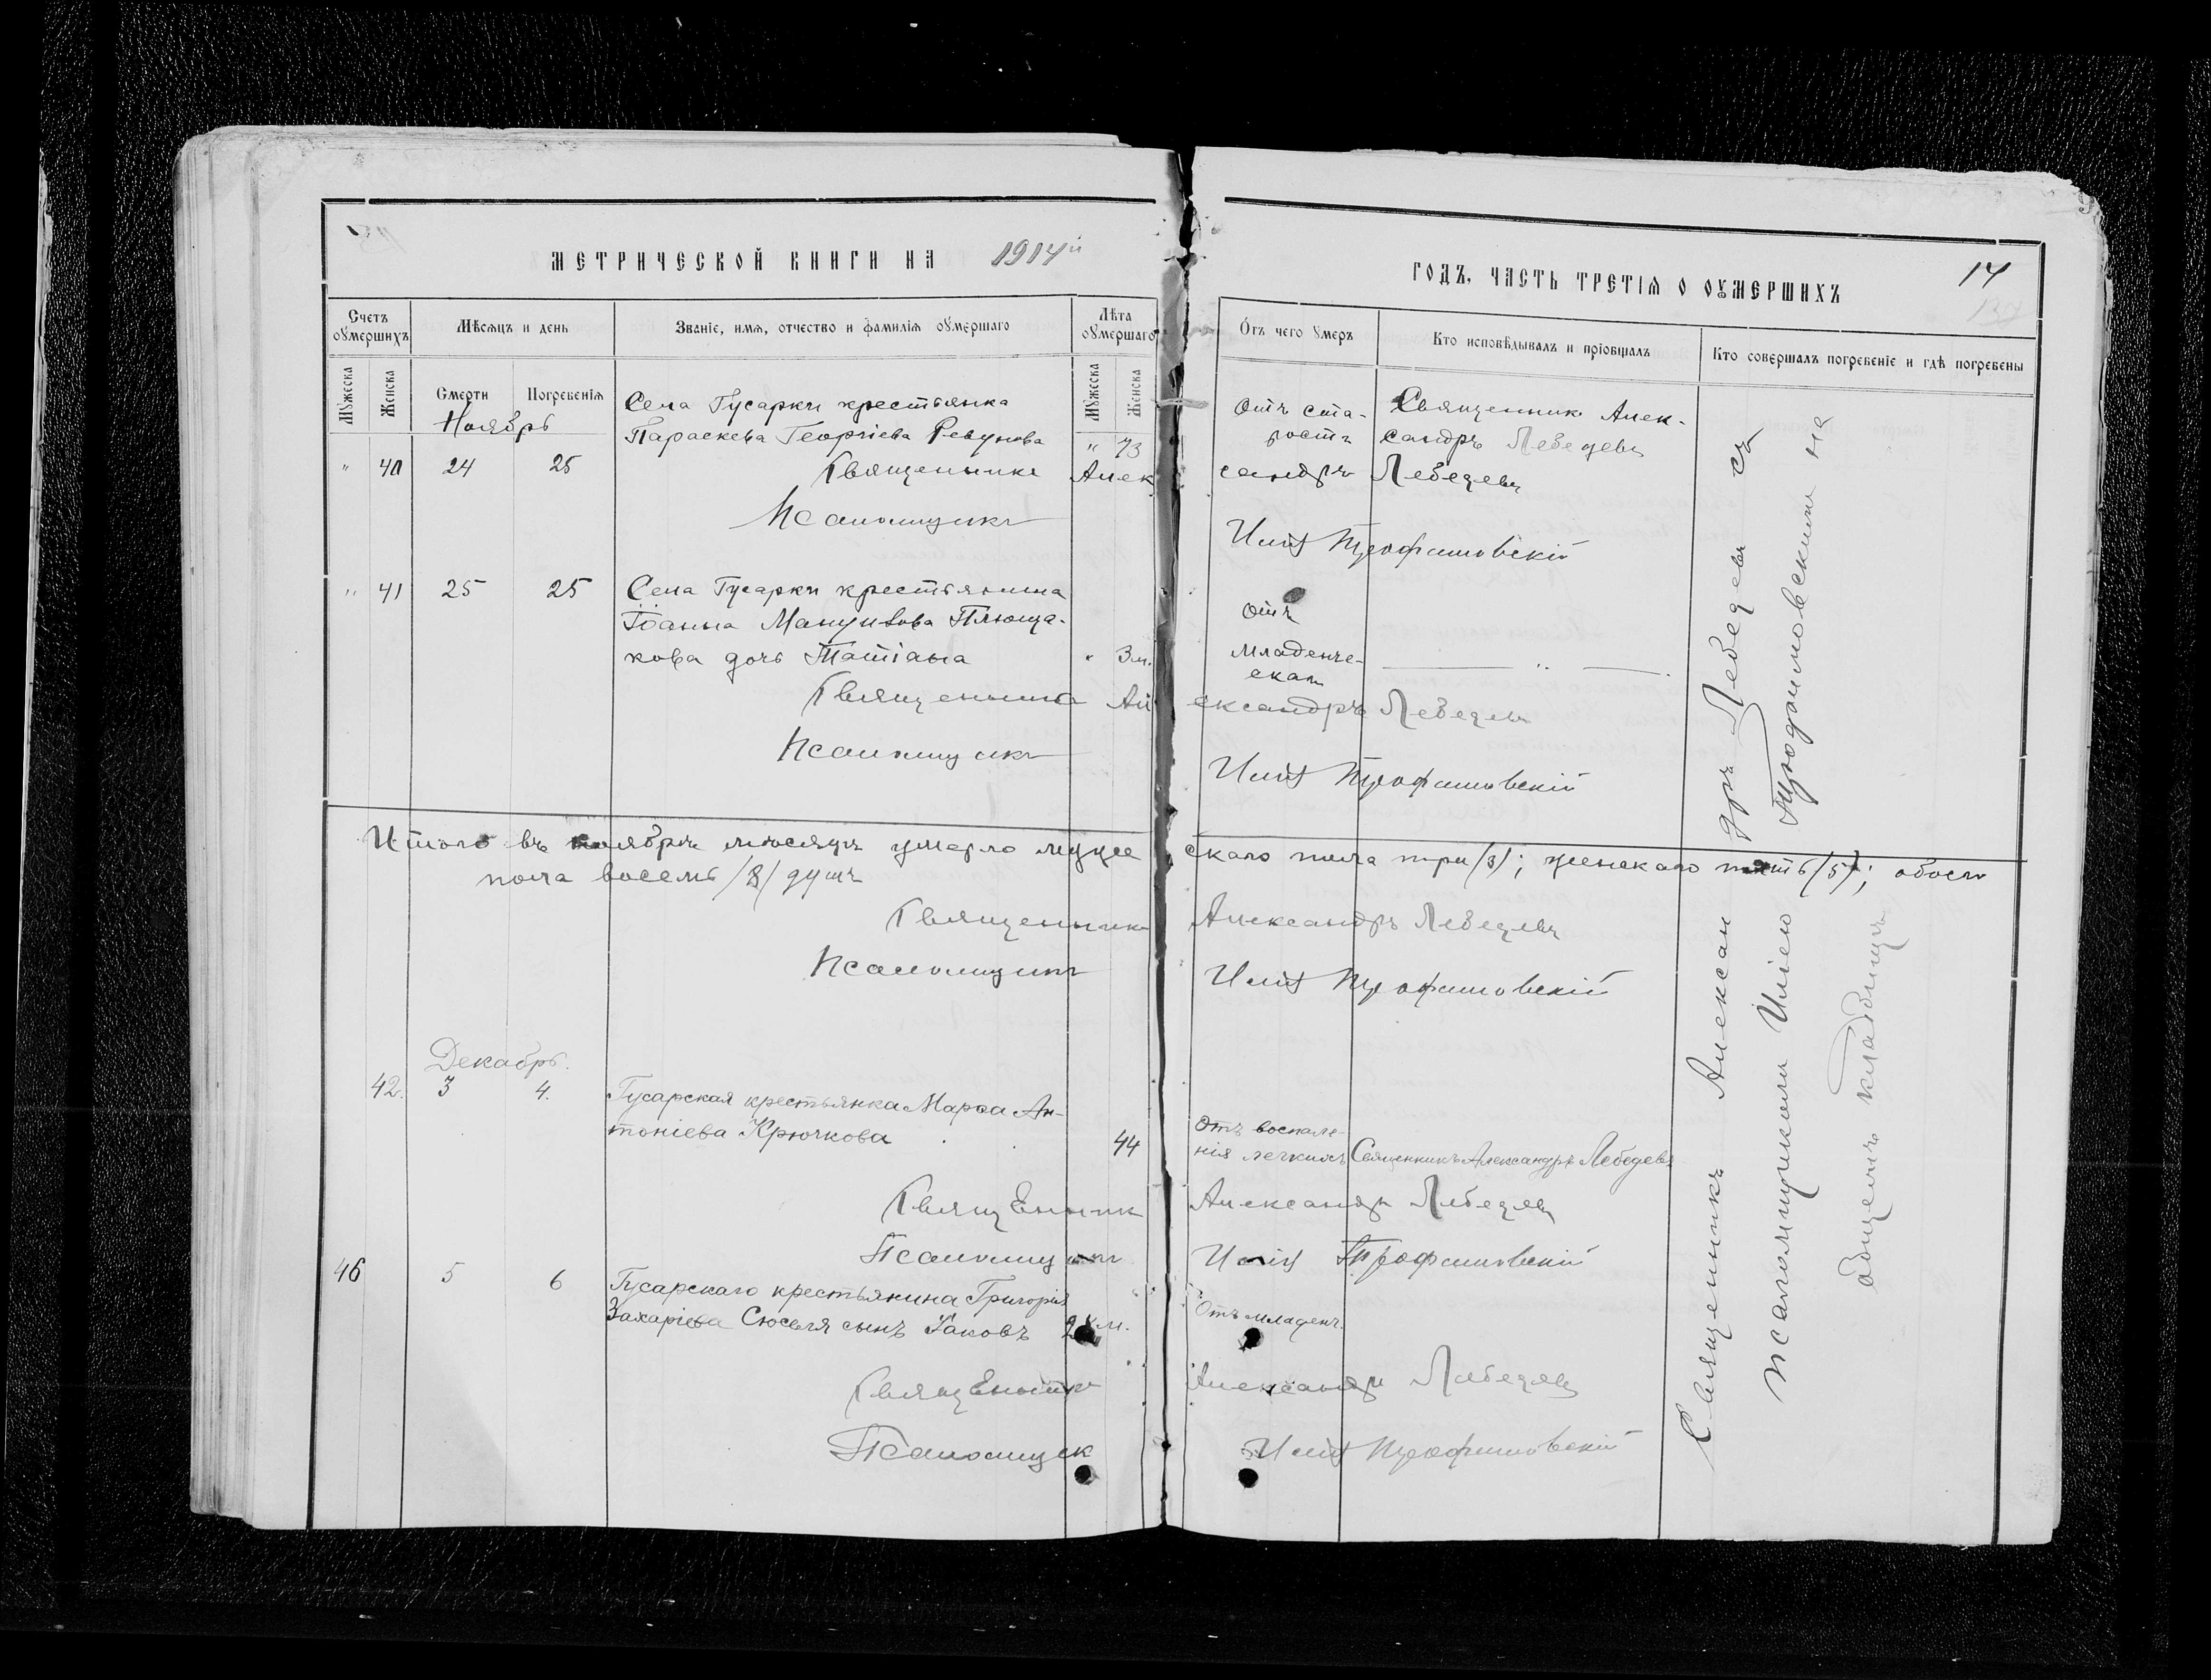 МЕТРИЧЕСКОЙ КНИГИ НА 1914й
ГОДЪ, ЧАСТЬ ТРЕТІѦ О ОУМЕРШИХЪ
14
Счетъ оумершихъ
Мѣсяцъ и день
Званіе, имѧ, отчество и фамилія оумершаго
Лѣта оумершаго
Отъ чего умеръ
Кто исповѣдывалъ и пріобщалъ
Кто совершалъ погребеніе и гдѣ погребены
Мужеска
Женска
Смерти
Погребенія
Мужеска
Женска
Ноябрь
Села Гусарки крестьянка
Параскева Георгіева Ревунова
" 40 24 25
" 73
Отъ ста-
рости
Священникъ Алек-
сандръ Лебедевъ
Священникъ Александръ Лебедевъ
Псаломщикъ Илія Трофимовскій
" 41 25 25
Села Гусарки крестьянина
Іоанна Мануилова Плюща-
кова дочь Татіана
" 3 м.
Отъ
младенче-
скаго
Священникъ Александръ Лебедевъ
Псаломщикъ Илія Трофимовскій
Итого въ ноябрѣ мѣсяцѣ умерло мужескаго пола три (3); женскаго пять (5); обоего
пола восемь /8/ душъ
Священникъ Александръ Лебедевъ
Псаломщикъ Илія Трофимовскій
Декабрь.
42. 3 4.
Гусарская крестьянка Марѳа Ан-
тоніева Крючкова
44
Отъ воспале-
нія легкихъ
Священникъ Александръ Лебедевъ
Священникъ Александръ Лебедевъ
Псаломщикъ Илія Трофимовскій
46 5 6
Гусарскаго крестьянина Григорія
Захаріева Сюселя сынъ Іаковъ
м.
Отъ младенч.
Священникъ Александръ Лебедевъ
Псаломщик Илія Трофимовскій
Священникъ Александръ Лебедевъ съ
псаломщикомъ Иліею Трофимовскимъ на
общемъ кладбищѣ